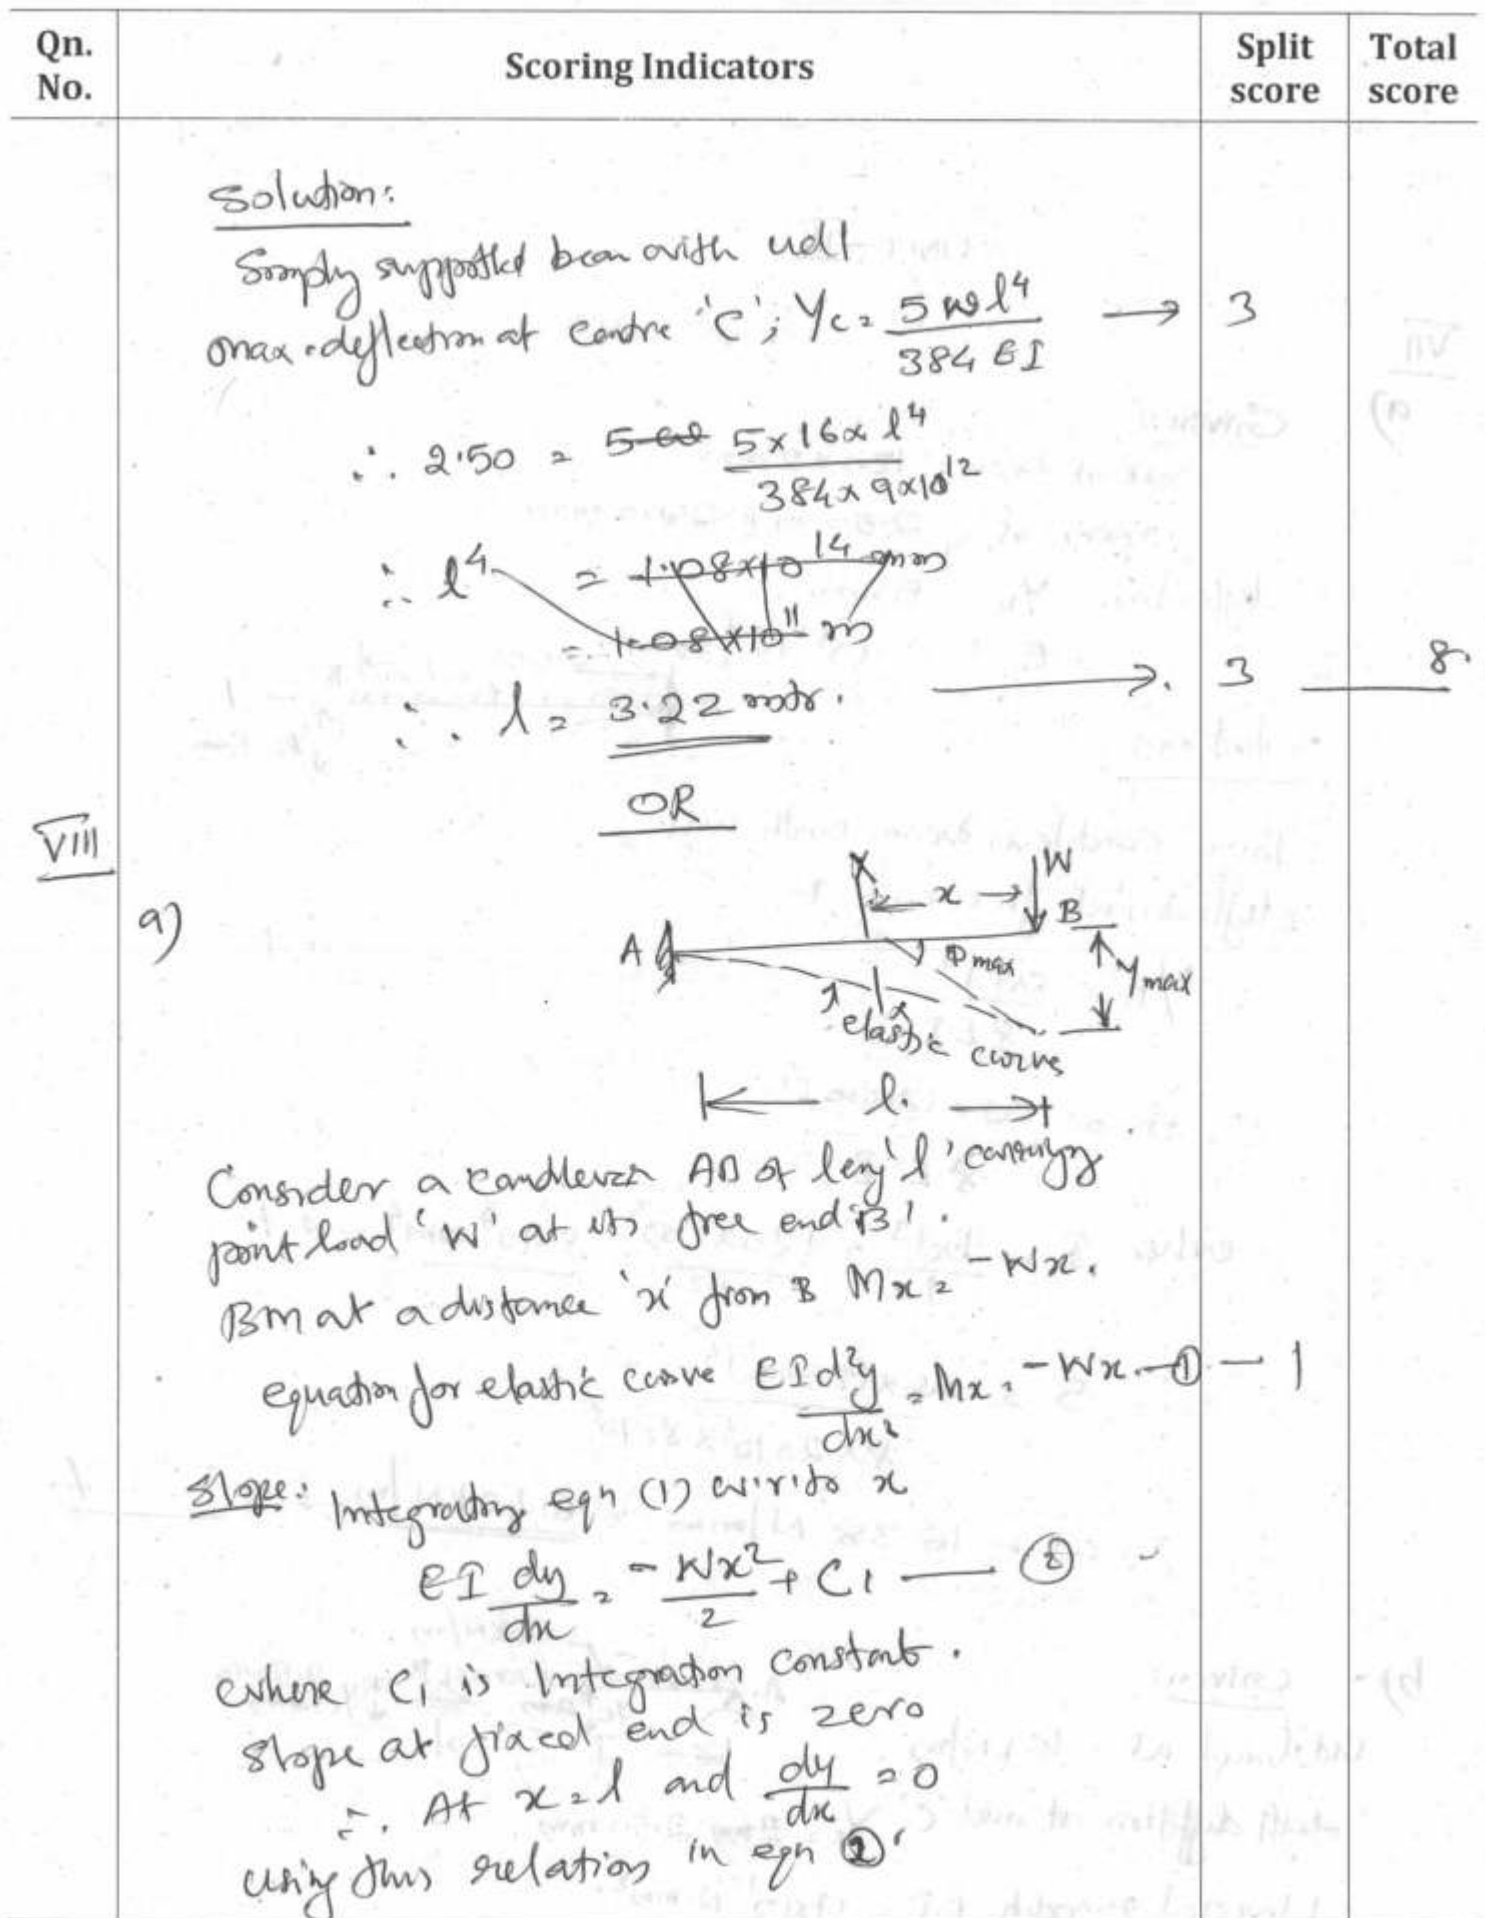 Qn. No. Scoring Indicators Split score Total score
Solution:
Simply supported beam with udl
max. deflection at centre 'C'; Yc = 5wl⁴ / 384 EI → 3
∴ 2.50 = 5 × 16 × l⁴ / 384 × 9×10¹²
∴ l⁴ = 1.08×10¹⁴ mm
= 1.08×10¹¹ m
∴ l = 3.22 mtr. → 3 8.
OR
VIII
a)
X x → W
A B
Φmax Ymax
elastic curve
l.
Consider a cantilever AB of leng 'l' carrying
point load 'W' at its free end 'B'.
BM at a distance 'x' from B Mx = -Wx.
equation for elastic curve EI d²y/dx² = Mx = -Wx. — ① — 1
Slope: Integrating eqn (1) w.r.to x
EI dy/dx = -Wx²/2 + C1 — ②
where C1 is Integration constant.
Slope at fixed end is zero
∴ At x = l and dy/dx = 0
using this relation in eqn ②